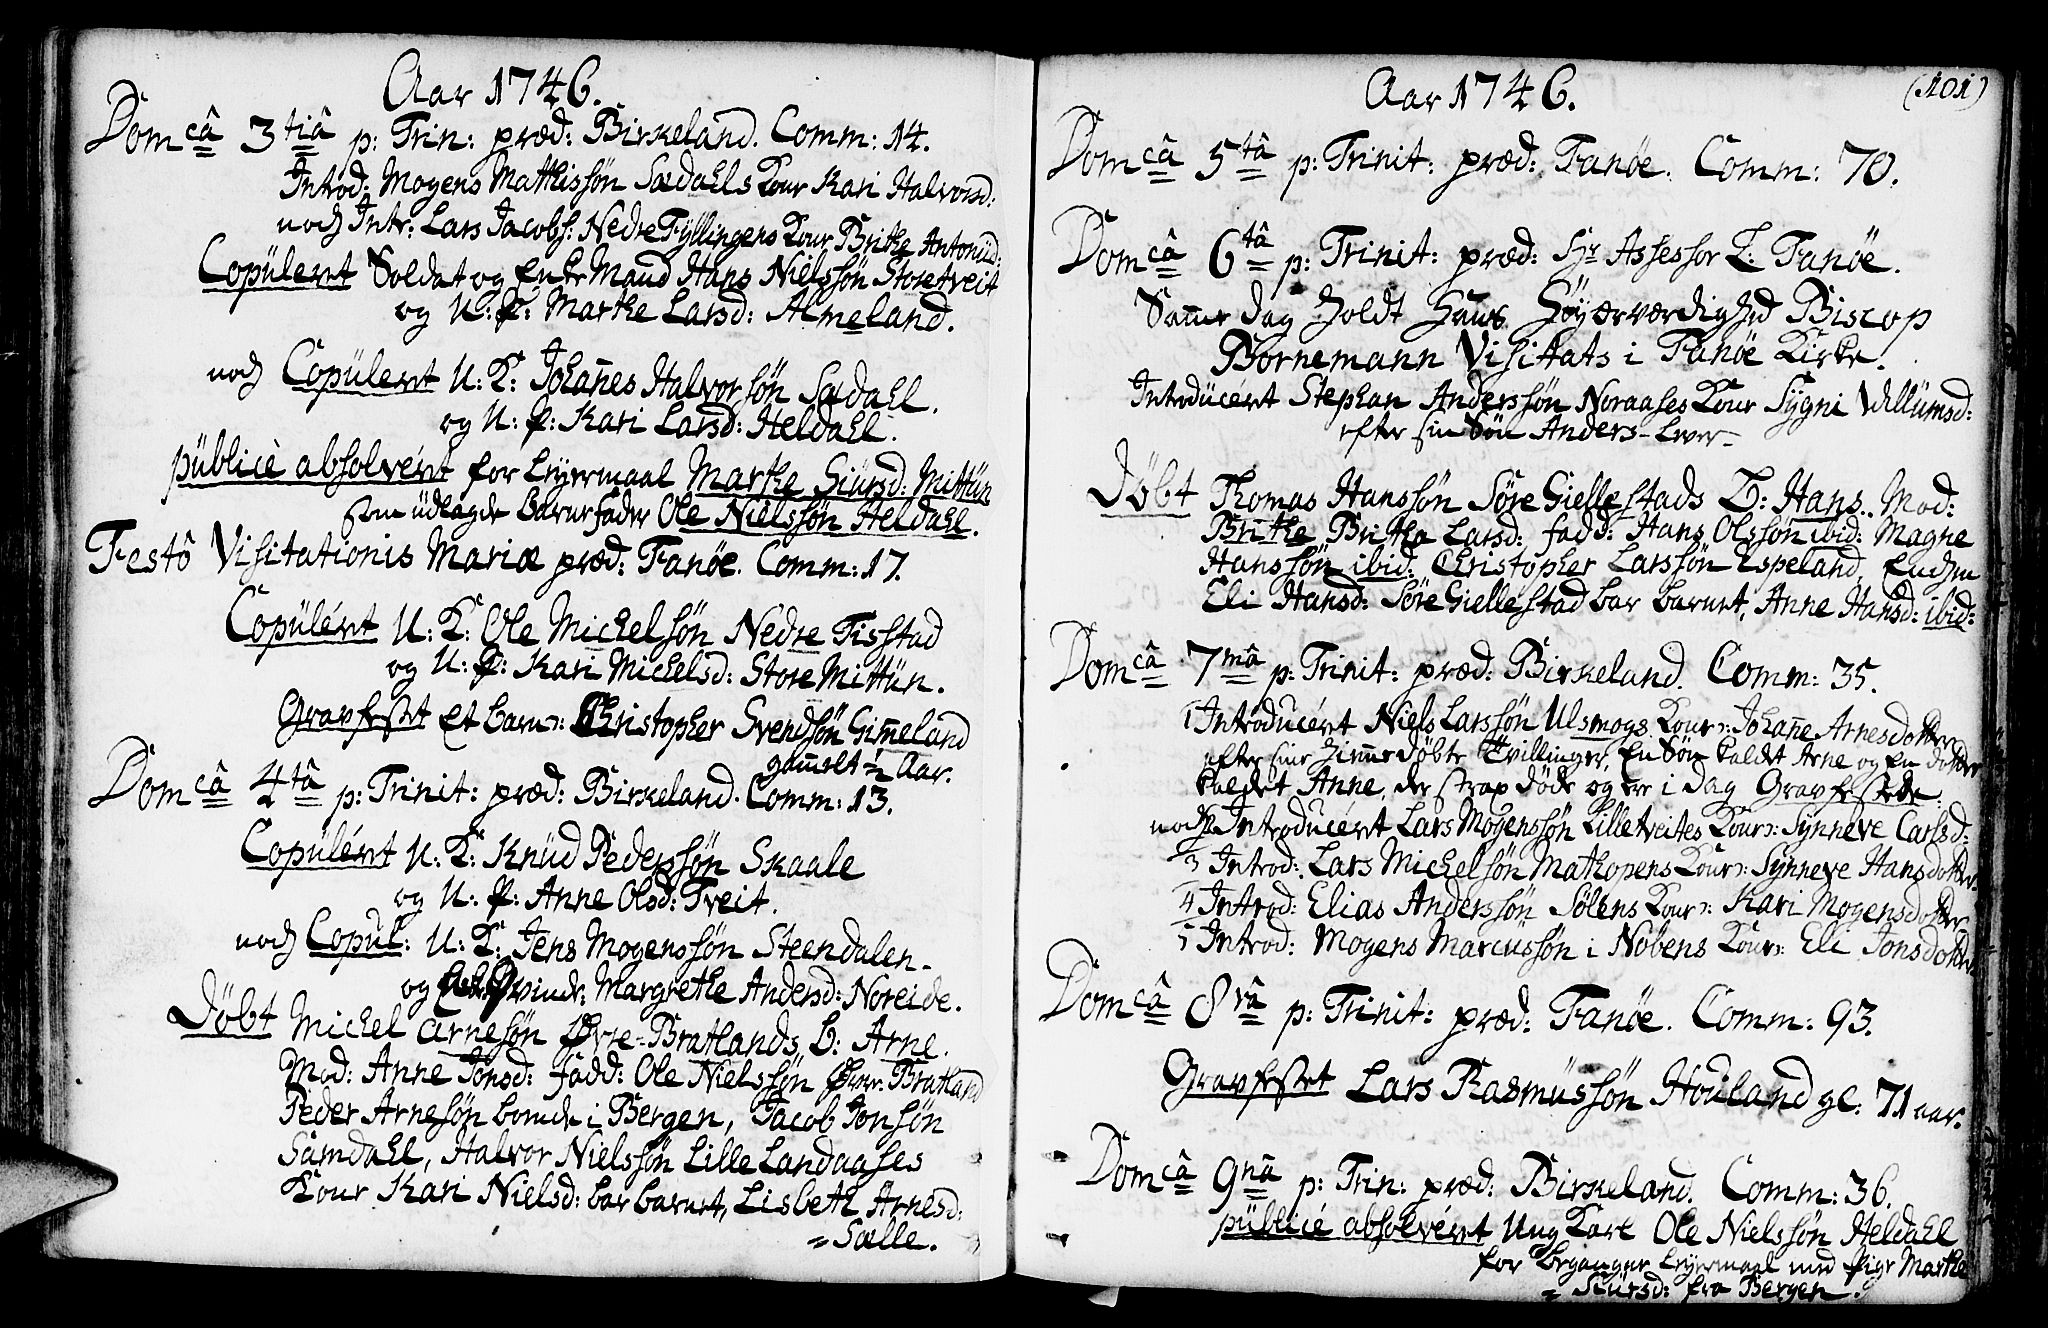 Aar 1746.
Domcâ 3tiâ p: Trin: præd: Birkeland. Comm: 14.
Introd: Mogens Mathissøn Sædahls Kour Kari Halvorsd:
noch Intr: Lars Jacobs: Nedre Fyllingens Kour Brithe Antonüd:
Copülert Soldat og Enke Mand Hans Nielssøn Storetveit
og U: P: Marthe Larsd: Almeland.
noch Copülert U: K: Johañes Halvorssøn Sædahl.
og U: P: Kari Larsd: Heldahl.
püblicè absolvért for Leyermaal Marthe Siürsd: Mittün
som üdlagde Barnefader Ole Nielssøn Heldahl.
Festô Visitationis Mariæ præd: Fanøe. Comm: 17.
Copülért U: K: Ole Michelsøn Nedre Tisstad
og U: P: Kari Michelsd: Store Mittün.
Gravfestet Et barn: Christopher Svendsøn Gim̃eland
gam̃elt ½ Aar.
Domcâ 4tâ p: Trinit: præd: Birkeland. Comm: 13.
Copülért U: K: Knüd Pederssøn Skaale
og U: P: Anne Olsd: Tveit.
noch Copul: U: K: Jens Mogenssøn Steendalen
og Qvinde: Margrethe Andersd: Noreide.
Døbt Michel Arnesøn Øvre-Bratlands b: Arne.
Mod: Anne Jonsd: fadd: Ole Nielssøn Øvre Bratland
Peder Arnesøn boende i Bergen, Jacob Jonsøn
Samdahl, Halvor Nielssøn Lille Landaases
Kour Kari Nielsd: bar barnet, Lisbeth Arnesd:
= Sælle.
Aar 1746.
(101)
Domcâ 5tâ p: Trinit: præd: Fanøe. Comm: 70.
Domcâ 6tâ p: Trinit: præd: Hr Assessor L: Fanöe.
Sam̃e Dag holdt Hans Höyærværdighed Biscop
Bornemann Visitats i Fanöe Kirke.
Introdücért Stephan Anderssøn Noraases Kour Sygni Villümsd:
efter sin Søn Anders-
Døbt Thomas Hanssøn Søre Giellestads B: Hans. Mod:
Brithe Britha Larsd: fadd: Hans Olssøn ibid: Magne
Hanssøn ibid: Christopher Larssøn Espeland,
Eli Hansd: Søre Giellestad bar barnet, Anne Hansd: ibid:
Domcâ 7mâ p: Trinit: præd: Birkeland. Comm: 35.
1 Introducért Niels Larssøn Ulsmogs Kour: Johañe Arnesdotter
efter sine hiemmedøbte Tvillinger, En Søn kaldet Arne og En Dotter
kaldet Anne, der strax døde og ere i dag Gravfestede.
noch 2 Introducért Lars Mogenssøn Lilletveites Kour: Synneve Carlsd:
3 Introd: Lars Michelsøn Mathopens Kour: Synneve Hansdotter
4 Introd: Elias Anderssøn Sølens Kour: Kari Mogensdotter
5 Introd: Mogens Marcussøn i Nøbens Kour: Eli Jonsdotter
Domcâ 8vâ p: Trinit: præd: Fanøe. Comm: 93.
Gravfestet Lars Rasmüssøn Houland gl: 71 aar.
Domcâ 9nâ p: Trin: præd: Birkeland. Comm: 36.
püblicé absolvért Ung Karl Ole Nielssøn Heldahl
for begangne Leyermaal med Pige Marthe
= Siürsd: fra Bergen.